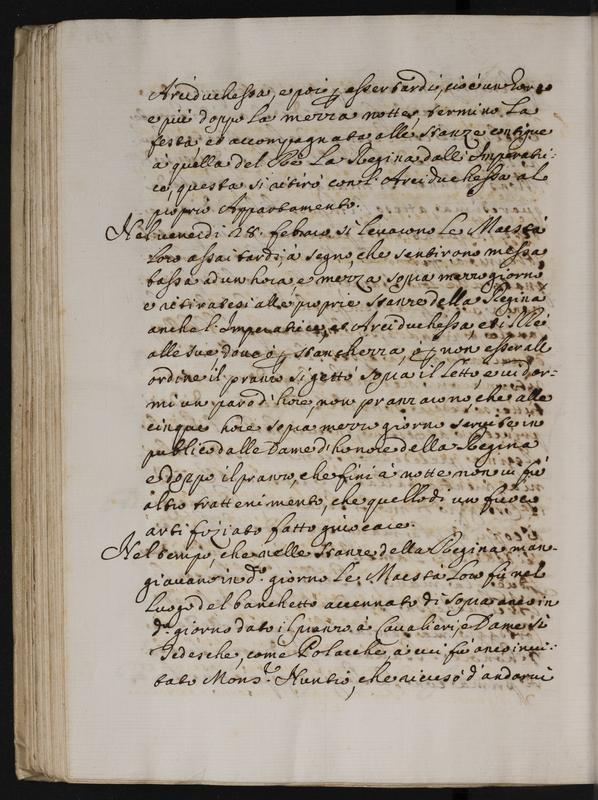 Arciduchessa, e poi p esser tardi, cioè un hora
e più doppo la mezza notte, terminò la
festa, et accompagnata alle stanze contigue
à quella del Rè la Regina dall' Imperatri=
ce, questa si ritirò con l'Arciduchessa al
proprio Appartamento.
Nel venerdi 28. febraro si levarono le Maestà
loro assai tardi, à segno, che sentirono messa
bassa ad un hora, e mezza sopra mezzo giorno
e ritiratesi alle proprie stanze della Regina
anche l'Imperatrice, et Arciduchessa, et il Rè
alle sue dove ò p stanchezza, ò p non esser all
ordine il pranzo si gettò sopra il letto, e vi dor=
mi un paro d'hore, non pranzarono, che alle
cinque hore sopra mezzo giorno servite in
publico dalle Dame d'honore della Regina
e doppo il pranzo, che finì à notte non vi fù
altro trattenimento, che quello di un fuoco
artifiziato fatto giuocare.
Nel tempo, che nelle stanze della Regina man=
giavano in do. giorno le Maestà loro fù nel
luogo del banchetto accennato di sopra anco in
do. giorno dato il pranzo à Cavalieri, e Dame sì
Tedesche, come Polacche à cui fù anco invi=
tato Monsre. Nuntio, che ricusò d'andarvi